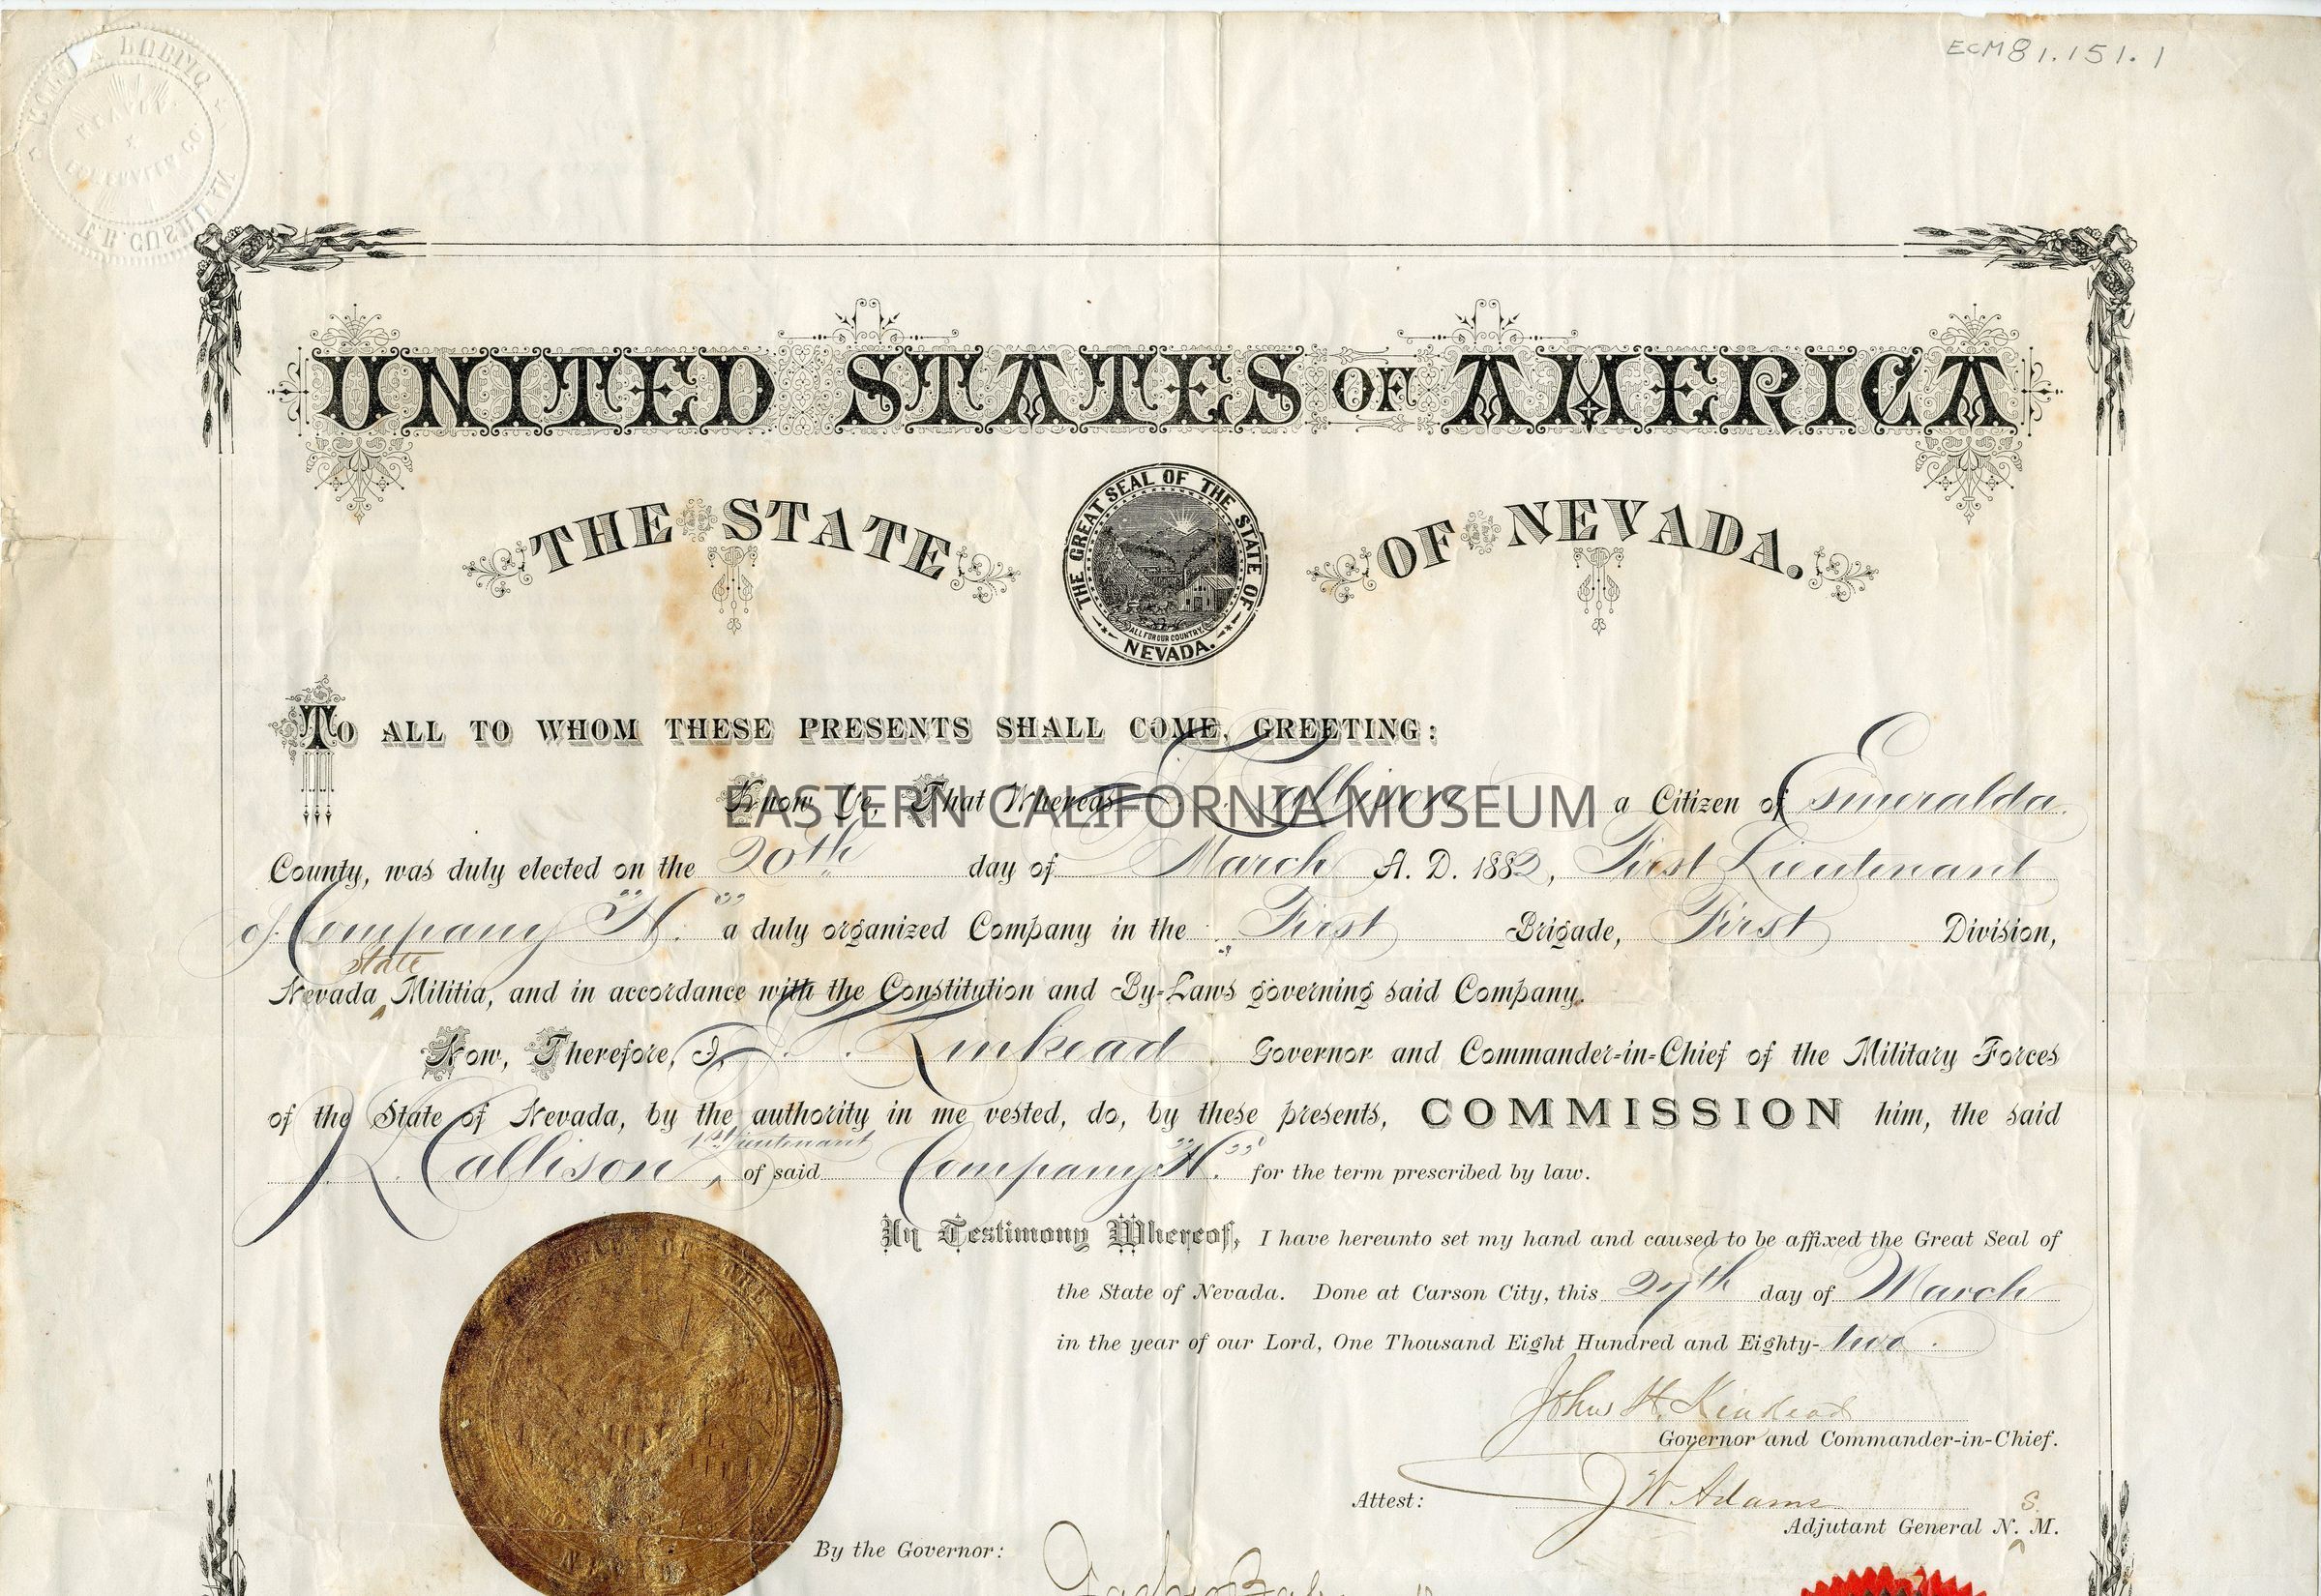 ECM81.151.1
NOTARY PUBLIC
F. B. CUSHMAN
UNITED STATES OF AMERICA
THE STATE OF NEVADA.
THE GREAT SEAL OF THE STATE OF NEVADA.
ALL FOR OUR COUNTRY
TO ALL TO WHOM THESE PRESENTS SHALL COME, GREETING:
Know Ye, That Whereas J. L. Callison a Citizen of Esmeralda
EASTERN CALIFORNIA MUSEUM
County, was duly elected on the 20th day of March A. D. 1882, First Lieutenant
of Company "H." a duly organized Company in the First Brigade, First Division,
state
Nevada Militia, and in accordance with the Constitution and By-Laws governing said Company.
Now, Therefore, I, Kinkead Governor and Commander-in-Chief of the Military Forces
of the State of Nevada, by the authority in me vested, do, by these presents, COMMISSION him, the said
1st Lieutenant
J. L. Callison of said Company "H." for the term prescribed by law.
In Testimony Whereof, I have hereunto set my hand and caused to be affixed the Great Seal of
the State of Nevada. Done at Carson City, this 27th day of March
in the year of our Lord, One Thousand Eight Hundred and Eighty-two.
John H. Kinkead
Governor and Commander-in-Chief.
Attest: J W Adams
S.
Adjutant General N. M.
By the Governor: